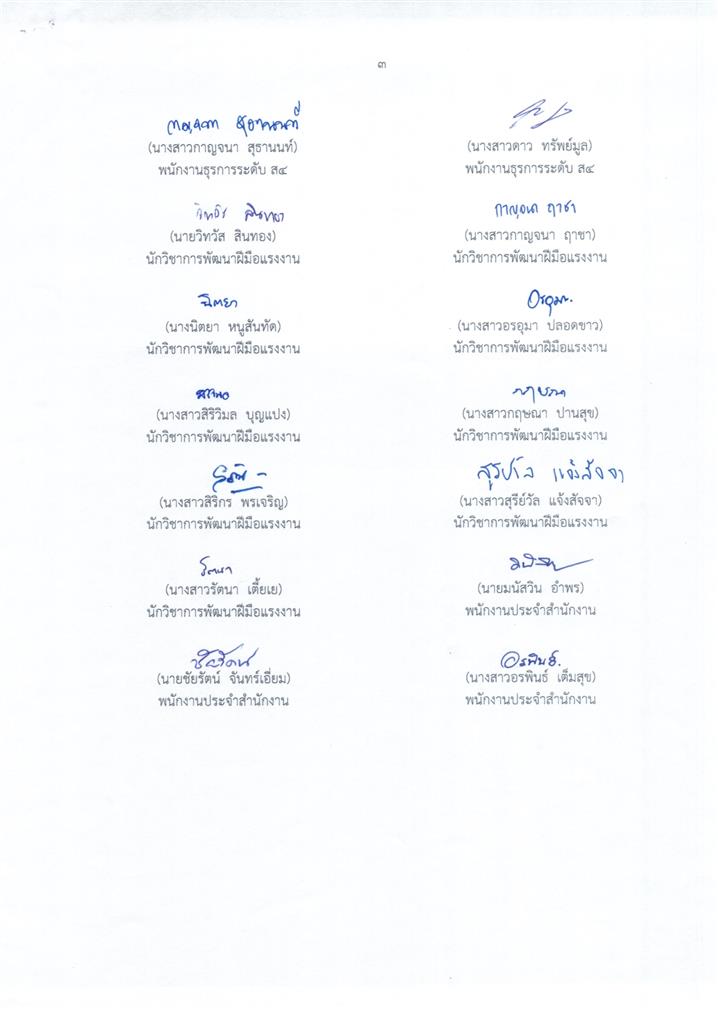 ๓
กาญจนา สุธานนท์
(นางสาวกาญจนา สุธานนท์)
พนักงานธุรการระดับ ส๔
(นางสาวดาว ทรัพย์มูล)
พนักงานธุรการระดับ ส๔
(นายวิทวัส สินทอง)
นักวิชาการพัฒนาฝีมือแรงงาน
กาญจนา ฤาชา
(นางสาวกาญจนา ฤาชา)
นักวิชาการพัฒนาฝีมือแรงงาน
นิตยา
(นางนิตยา หนูสันทัด)
นักวิชาการพัฒนาฝีมือแรงงาน
อรอุมา
(นางสาวอรอุมา ปลอดขาว)
นักวิชาการพัฒนาฝีมือแรงงาน
(นางสาวสิริวิมล บุญแปง)
นักวิชาการพัฒนาฝีมือแรงงาน
(นางสาวกฤษณา ปานสุข)
นักวิชาการพัฒนาฝีมือแรงงาน
(นางสาวสิริกร พรเจริญ)
นักวิชาการพัฒนาฝีมือแรงงาน
สุรีย์วัล แจ้งสัจจา
(นางสาวสุรีย์วัล แจ้งสัจจา)
นักวิชาการพัฒนาฝีมือแรงงาน
รัตนา
(นางสาวรัตนา เตี้ยเย)
นักวิชาการพัฒนาฝีมือแรงงาน
(นายมนัสวิน อำพร)
พนักงานประจำสำนักงาน
ชัยรัตน์
(นายชัยรัตน์ จันทร์เอี่ยม)
พนักงานประจำสำนักงาน
อรพินธ์.
(นางสาวอรพินธ์ เต็มสุข)
พนักงานประจำสำนักงาน